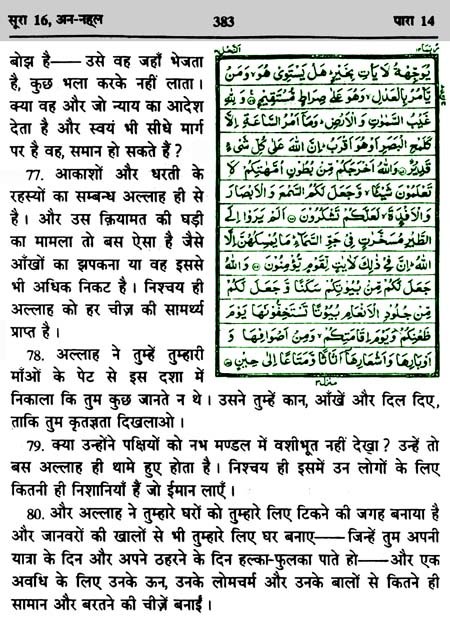 सूरा 16, अन-नह्ल
383
पारा 14
बोझ है—— उसे वह जहाँ भेजता
है, कुछ भला करके नहीं लाता।
क्या वह और जो न्याय का आदेश
देता है और स्वयं भी सीधे मार्ग
पर है वह, समान हो सकते हैं ?
77. आकाशों और धरती के
रहस्यों का सम्बन्ध अल्लाह ही से
है। और उस क़ियामत की घड़ी
का मामला तो बस ऐसा है जैसे
आँखों का झपकना या वह इससे
भी अधिक निकट है। निश्चय ही
अल्लाह को हर चीज़ की सामर्थ्य
प्राप्त है।
78. अल्लाह ने तुम्हें तुम्हारी
माँओं के पेट से इस दशा में
النحل
يُوَجِّهْهُ لَا يَأْتِ بِخَيْرٍ هَلْ يَسْتَوِي هُوَ وَمَنْ
يَأْمُرُ بِالْعَدْلِ وَهُوَ عَلَى صِرَاطٍ مُسْتَقِيمٍ وَلِلَّهِ
غَيْبُ السَّمٰوٰتِ وَالْأَرْضِ وَمَا أَمْرُ السَّاعَةِ إِلَّا
كَلَمْحِ الْبَصَرِ أَوْ هُوَ أَقْرَبُ إِنَّ اللَّهَ عَلَى كُلِّ شَيْءٍ
قَدِيرٌ وَاللَّهُ أَخْرَجَكُمْ مِنْ بُطُونِ أُمَّهٰتِكُمْ لَا
تَعْلَمُونَ شَيْئًا وَجَعَلَ لَكُمُ السَّمْعَ وَالْأَبْصَارَ
وَالْأَفْئِدَةَ لَعَلَّكُمْ تَشْكُرُونَ أَلَمْ يَرَوْا إِلَى
الطَّيْرِ مُسَخَّرٰتٍ فِي جَوِّ السَّمَاءِ مَا يُمْسِكُهُنَّ إِلَّا
اللَّهُ إِنَّ فِي ذٰلِكَ لَاٰيٰتٍ لِقَوْمٍ يُؤْمِنُونَ وَاللَّهُ
جَعَلَ لَكُمْ مِنْ بُيُوتِكُمْ سَكَنًا وَجَعَلَ لَكُمْ
مِنْ جُلُودِ الْأَنْعَامِ بُيُوتًا تَسْتَخِفُّونَهَا يَوْمَ
ظَعْنِكُمْ وَيَوْمَ إِقَامَتِكُمْ وَمِنْ أَصْوَافِهَا وَ
أَوْبَارِهَا وَأَشْعَارِهَا أَثَاثًا وَمَتَاعًا إِلَى حِينٍ
निकाला कि तुम कुछ जानते न थे। उसने तुम्हें कान, आँखें और दिल दिए,
ताकि तुम कृतज्ञता दिखलाओ।
79. क्या उन्होंने पक्षियों को नभ मण्डल में वशीभूत नहीं देखा ? उन्हें तो
बस अल्लाह ही थामे हुए होता है। निश्चय ही इसमें उन लोगों के लिए
कितनी ही निशानियाँ हैं जो ईमान लाएँ।
80. और अल्लाह ने तुम्हारे घरों को तुम्हारे लिए टिकने की जगह बनाया है
और जानवरों की खालों से भी तुम्हारे लिए घर बनाए—— जिन्हें तुम अपनी
यात्रा के दिन और अपने ठहरने के दिन हल्का-फुलका पाते हो—— और एक
अवधि के लिए उनके ऊन, उनके लोमचर्म और उनके बालों से कितने ही
सामान और बरतने की चीज़ें बनाईं।